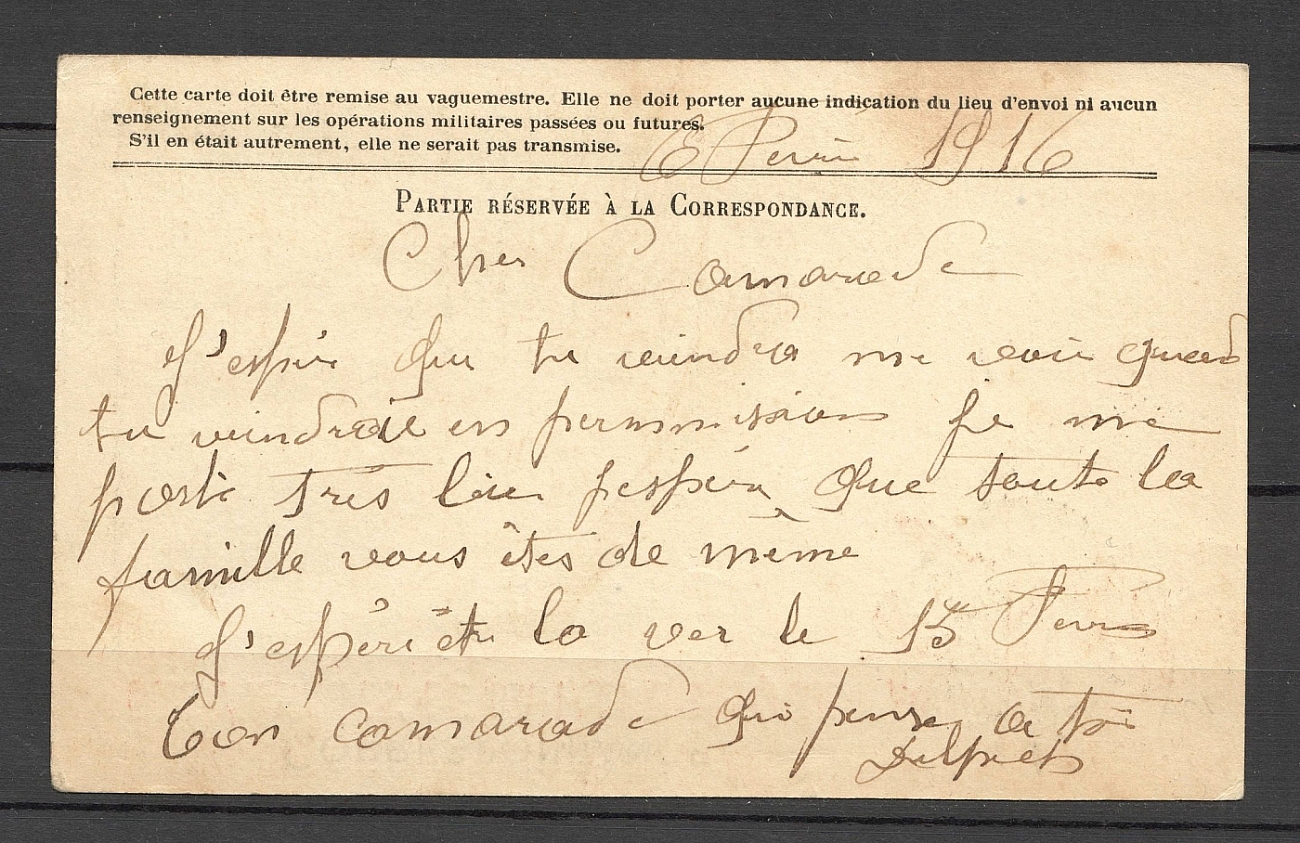 Cette carte doit être remise au vaguemestre. Elle ne doit porter aucune indication du lieu d'envoi ni aucun
renseignement sur les opérations militaires passées ou futures.
S'il en était autrement, elle ne serait pas transmise.
1916
PARTIE RÉSERVÉE À LA CORRESPONDANCE.
Cher Camarade
J'espère que tu viendra me voir quand
tu en permmission je me
porte très bien j'espère que toute la
famille vous êtes de même
J'espère la ver le 15
Ton camarade qui pense a toi